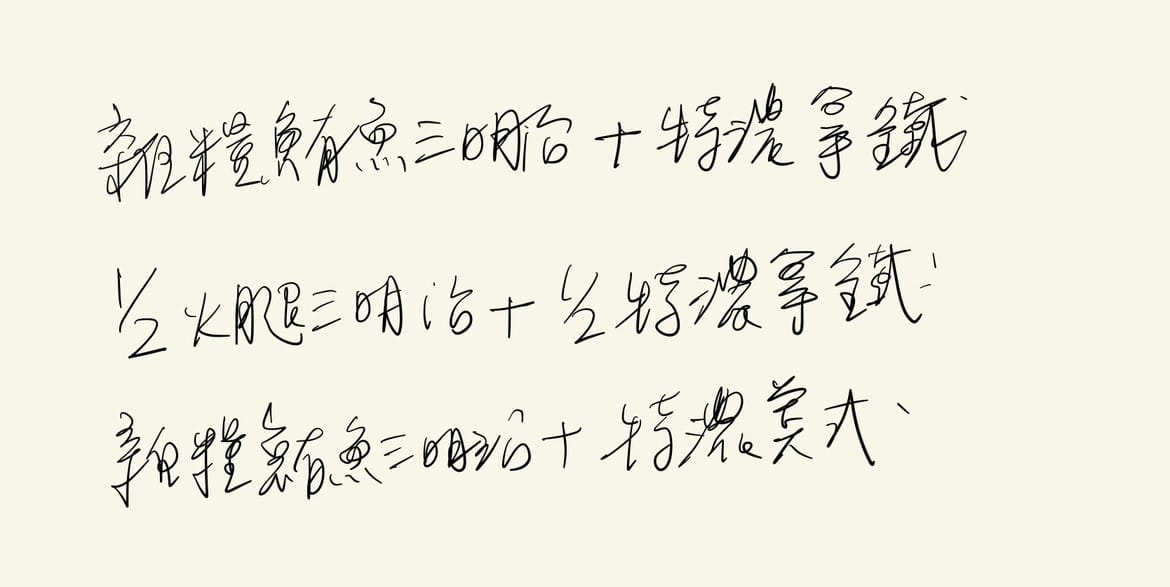 雜糧鮪魚三明治+特濃拿鐵
1/2火腿三明治+1/2特濃拿鐵
雜糧鮪魚三明治+特濃美式